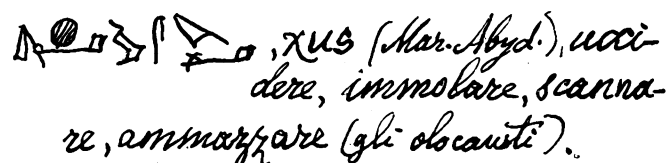 , χus (Mar. Abyd.), ucci-
dere, immolare, scanna-
re, ammazzare (gli olocausti).